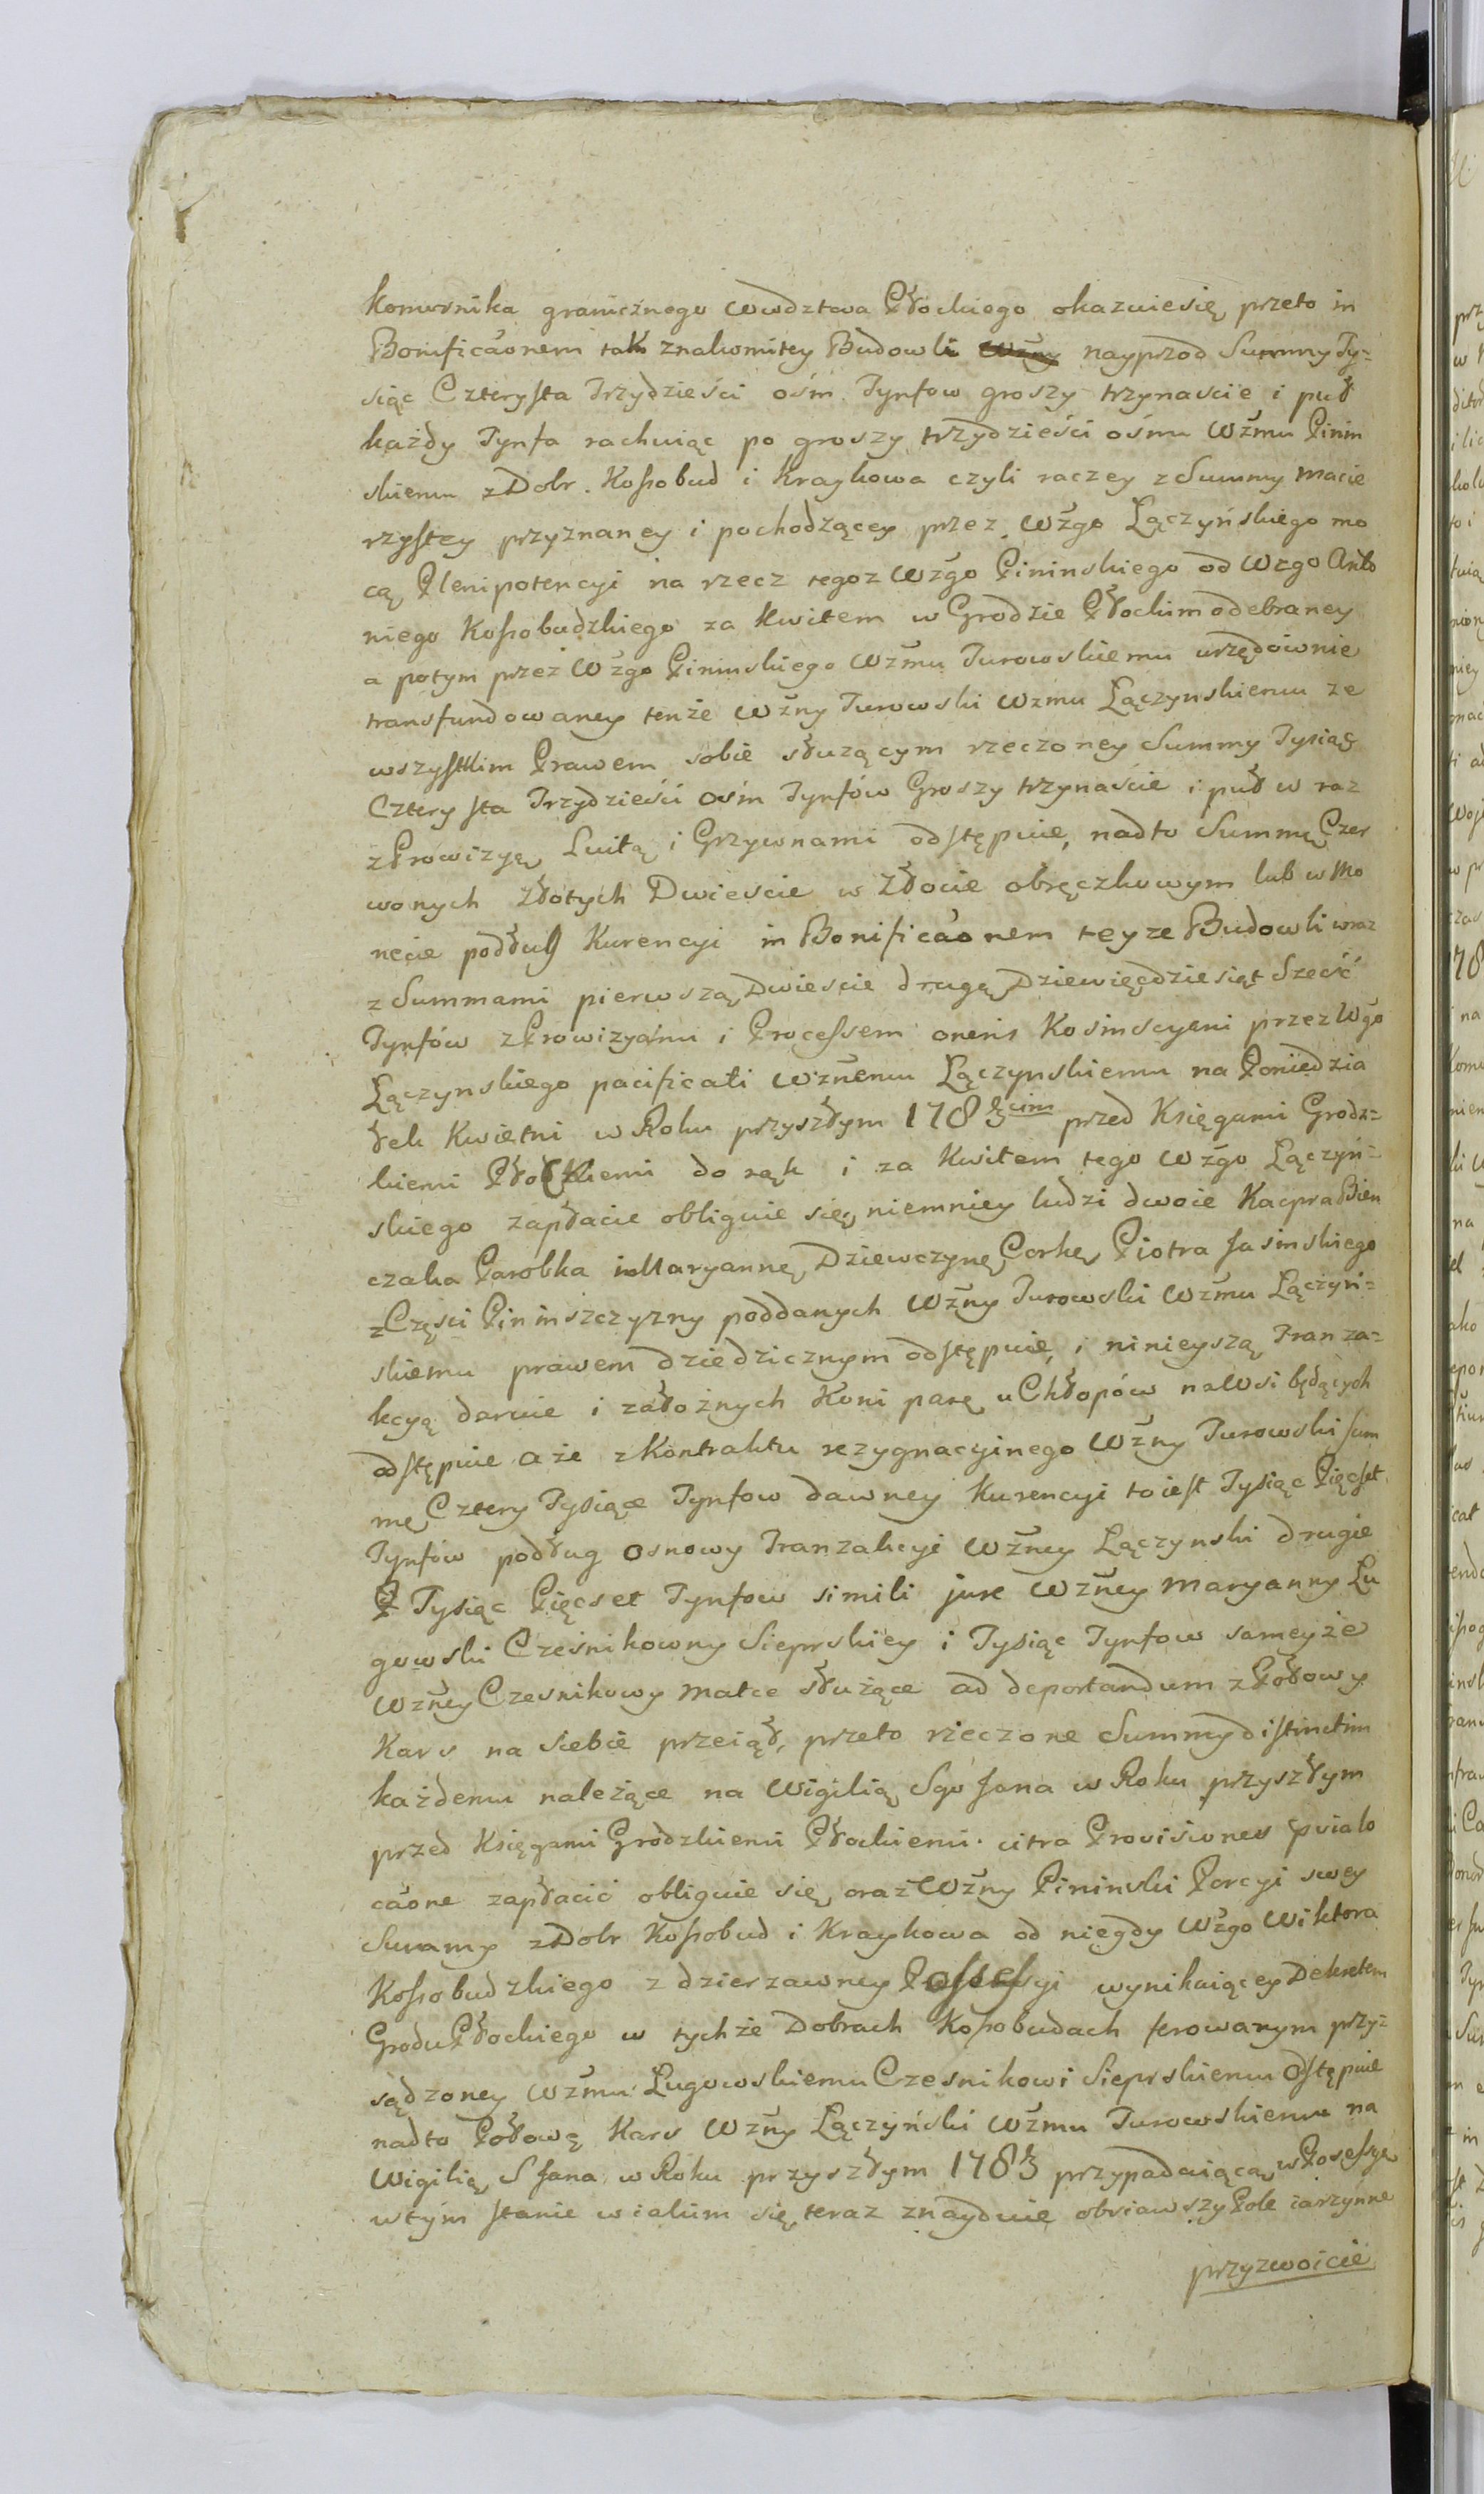 Komornika granicznego Wwdztwa Płockiego okazuiesię przeto in
Bonificãonem tak znakomitey Budowli Wżny nayprzod Summy Ty=
siąc Czterysta Trzydzieści ośm Tynfow groszy trzynascie i puł
każdy Tynfa rachuiąc po groszy trzydzieści ośmu Wżmu Pinin
skiemu z Dobr. Kossobud i Kraykowa czyli raczey z Summy Macie
rzystey przyznaney i pochodzącey przez Wżgo Łączyńskiego mo
cą Plenipotencyi na rzecz tegoz Wżgo Pininskiego od Wzgo Anto
niego Kossobudzkiego za Kwitem w Grodzie Płockim odebraney
a potym przez Wżgo Pininskiego Wżmu Turowskiemu urzędownie
transfundowaney tenże Wżny Turowski Wzmu Łączynskiemu ze
wszystkim Prawem sobie służącym rzeczoney Summy Tysiąc
Cztery sta Trzydzieści Ośm Tynfów Groszy trzynaście i puł w raz
z Prowizyą Luitą i Grzywnami odstępuie, nadto Summę Czer
wonych Złotych Dwiescie w Złocie obrączkowym lub w Mo
necie podług Kurencyi in Bonificãonem teyze Budowli wraz
z Summami pierwszą Dwiescie drugą Dziewięćdziesiąt Sześć
Tynfów z Prowizyami i Processem oneris Kosinscyeni przez Wgo
Łączynskiego pacificati Wżnemu Łączynskiemu na Poniedzia
łek Kwietni w Roku przyszłym 1783cim przed Księgami Grodz=
kiemi Płockiemi do rąk i za Kwitem tego Wżgo Łączyń=
skiego zapłacie obliguie się, niemniey ludzi dwoie Kacpra Bien
czaka Parobka i Maryannę Dziewczynę Corkę Piotra Jasinskiego
z Częsci Pininszczyzny poddanych Wżny Turowski Wżmu Łączyń=
skiemu prawem dziedzicznym odstępuie, i ninieyszą Tranza=
kcyą daruie i załoźnych Koni parę u Chłopów na Wsi będących
odstępuie a że z Kontraktu rezygnacyinego Wżny Turowski Sum
mę Cztery Tysiące Tynfow dawney Kurencyi toiest Tysiąc Pięcset
Tynfów podług Osnowy Tranzakcyi Wżney Łączynski drugie
Tysiąc Pięcset Tynfow simili jure Wżney Maryanny Lu
gowski Cześnikowny Sieprskiey i Tysiąc Tynfow sameyże
Wżney Czesnikowy Matce służące ad deportandum z Połowy
Kars na siebie przeiął, przeto rzeczone Summy distinctim
każdemu należące na Wigilią Sgo Jana w Roku przyszłym
przed Księgami Grodzkiemi Płockiemi. citra Provisiones
cãone zapłacić obliguie się oraz Wżny Pininski Porcyi swey
Summy z Dobr Kossobud i Kraykowa od niegdy Wżgo Wiktora
Kossobudzkiego z dzierzawney Possessyi wynikaiącey Dekretem
Grodu Płockiego w tychże Dobrach Kossobudach ferowanym przy=
sądzoney Wżmu Lugowskiemu Czesnikowi Sieprskiemu Odstępuie
nadto Połowę Kars Wżny Łączyński Wżmu Turowskiemu na
Wigilią S Jana w Roku przyszłym 1783 przypadaiącą w Possessyę
w tym stanie w iakim się teraz znayduie obsiawszy Pole iarzynne
przyzwoicie